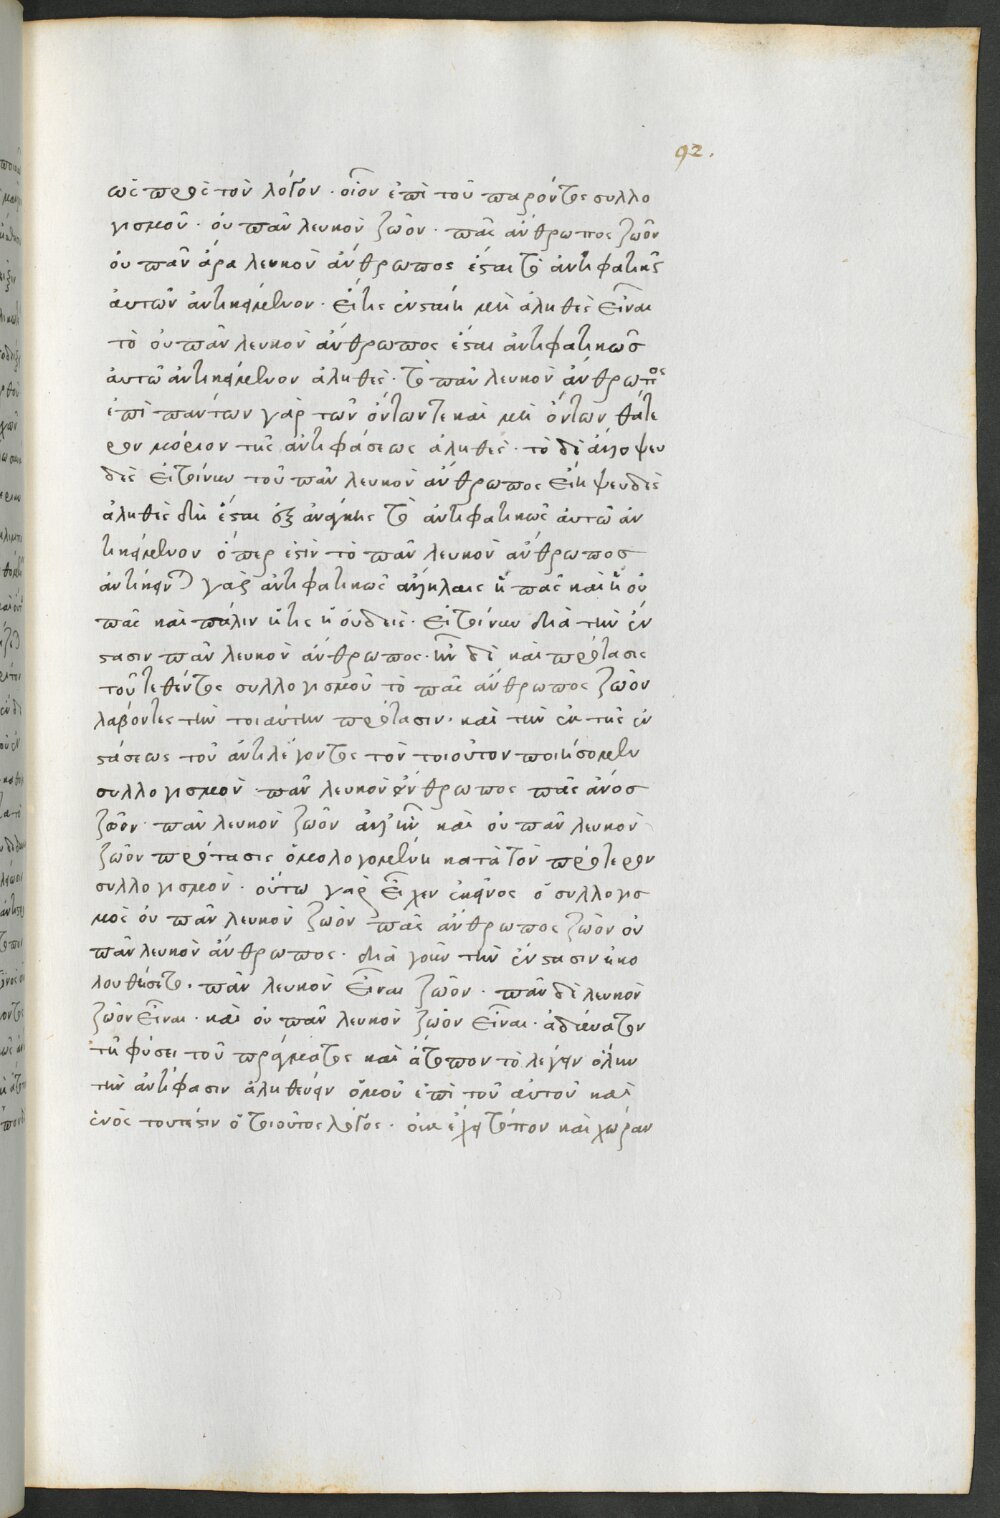 92.
ως πρὸς τὸν λόγον· οἷον ἐπὶ τοῦ παρόντος συλλο
γισμοῦ· οὐ πᾶν λευκὸν ζῶον· πᾶς ἄνθρωπος ζῶον
οὐ πᾶν ἄρα λευκὸν ἄνθρωπος ἔσται τὸ ἀντιφατικῶς
αὐτῶν ἀντικείμενον· εἴτις ἐνσταίη μὴ ἀληθὲς εἶναι
τὸ οὐ πᾶν λευκὸν ἄνθρωπος ἔσται ἀντιφατικῶς
αὐτῶ ἀντικείμενον ἀληθές· τὸ πᾶν λευκὸν ἄνθρωπος
ἐπὶ πάντων γὰρ τῶν ὄντων τε καὶ μὴ ὄντων θάτε
ρον μόριον τῆς ἀντιφάσεως ἀληθές· τὸ δὲ ἄλλο ψευ
δές εἰ τοίνυν τοῦ πᾶν λευκὸν ἄνθρωπος εἴη ψευδὲς
ἀληθὲς δὴ ἔσται ἐξ ἀνάγκης τὸ ἀντιφατικῶς αὐτῶ ἀν
τικείμενον ὅπερ ἐστὶν τὸ πᾶν λευκὸν ἄνθρωπος
ἀντίκειται γὰρ ἀντιφατικῶς ἀλλήλαις ἡ πᾶς καὶ ἡ οὐ
πᾶς καὶ πάλιν ἡ τὶς ἡ οὐδείς· εἰ τοίνυν διὰ τὴν ἔν
στασιν πᾶν λευκὸν ἄνθρωπος· ἦν δὲ καὶ πρότασις
τοῦ τεθέντος συλλογισμοῦ τὸ πᾶς ἄνθρωπος ζῶον
λαβόντες τὴν τοιαύτην πρότασιν· καὶ τὴν ἐκ τῆς ἐν
στάσεως τοῦ ἀντιλέγοντος τὸν τοιοῦτον ποιήσομεν
συλλογισμὸν· πᾶν λευκὸν ἄνθρωπος πᾶς ἄνος
ζῶον· πᾶν λευκὸν ζῶον ἀλλ' ἦν καὶ οὐ πᾶν λευκὸν
ζῶον πρότασις ὁμολογουμένη κατὰ τὸν πρότερον
συλλογισμὸν· οὕτω γὰρ εἶχεν ἐκεῖνος ὁ συλλογισ
μὸς οὐ πᾶν λευκὸν ζῶον πᾶς ἄνθρωπος ζῶον οὐ
πᾶν λευκὸν ἄνθρωπος· διὰ γοῦν τὴν ἔνστασιν ἠκο
λουθήσετο· πᾶν λευκὸν εἶναι ζῶον· πᾶν δὲ λευκὸν
ζῶον εἶναι· καὶ οὐ πᾶν λευκὸν ζῶον εἶναι· ἀδύνατον
τῆ φύσει τοῦ πράγματος καὶ ἄτοπον τὸ λέγειν ὅλην
τὴν ἀντίφασιν ἀληθεύειν ὁμοῦ ἐπὶ τοῦ αὐτοῦ καὶ
ἑνός τουτέστιν ὁ τοιοῦτος λόγος· οὐκ ἔχει τόπον καὶ χώραν